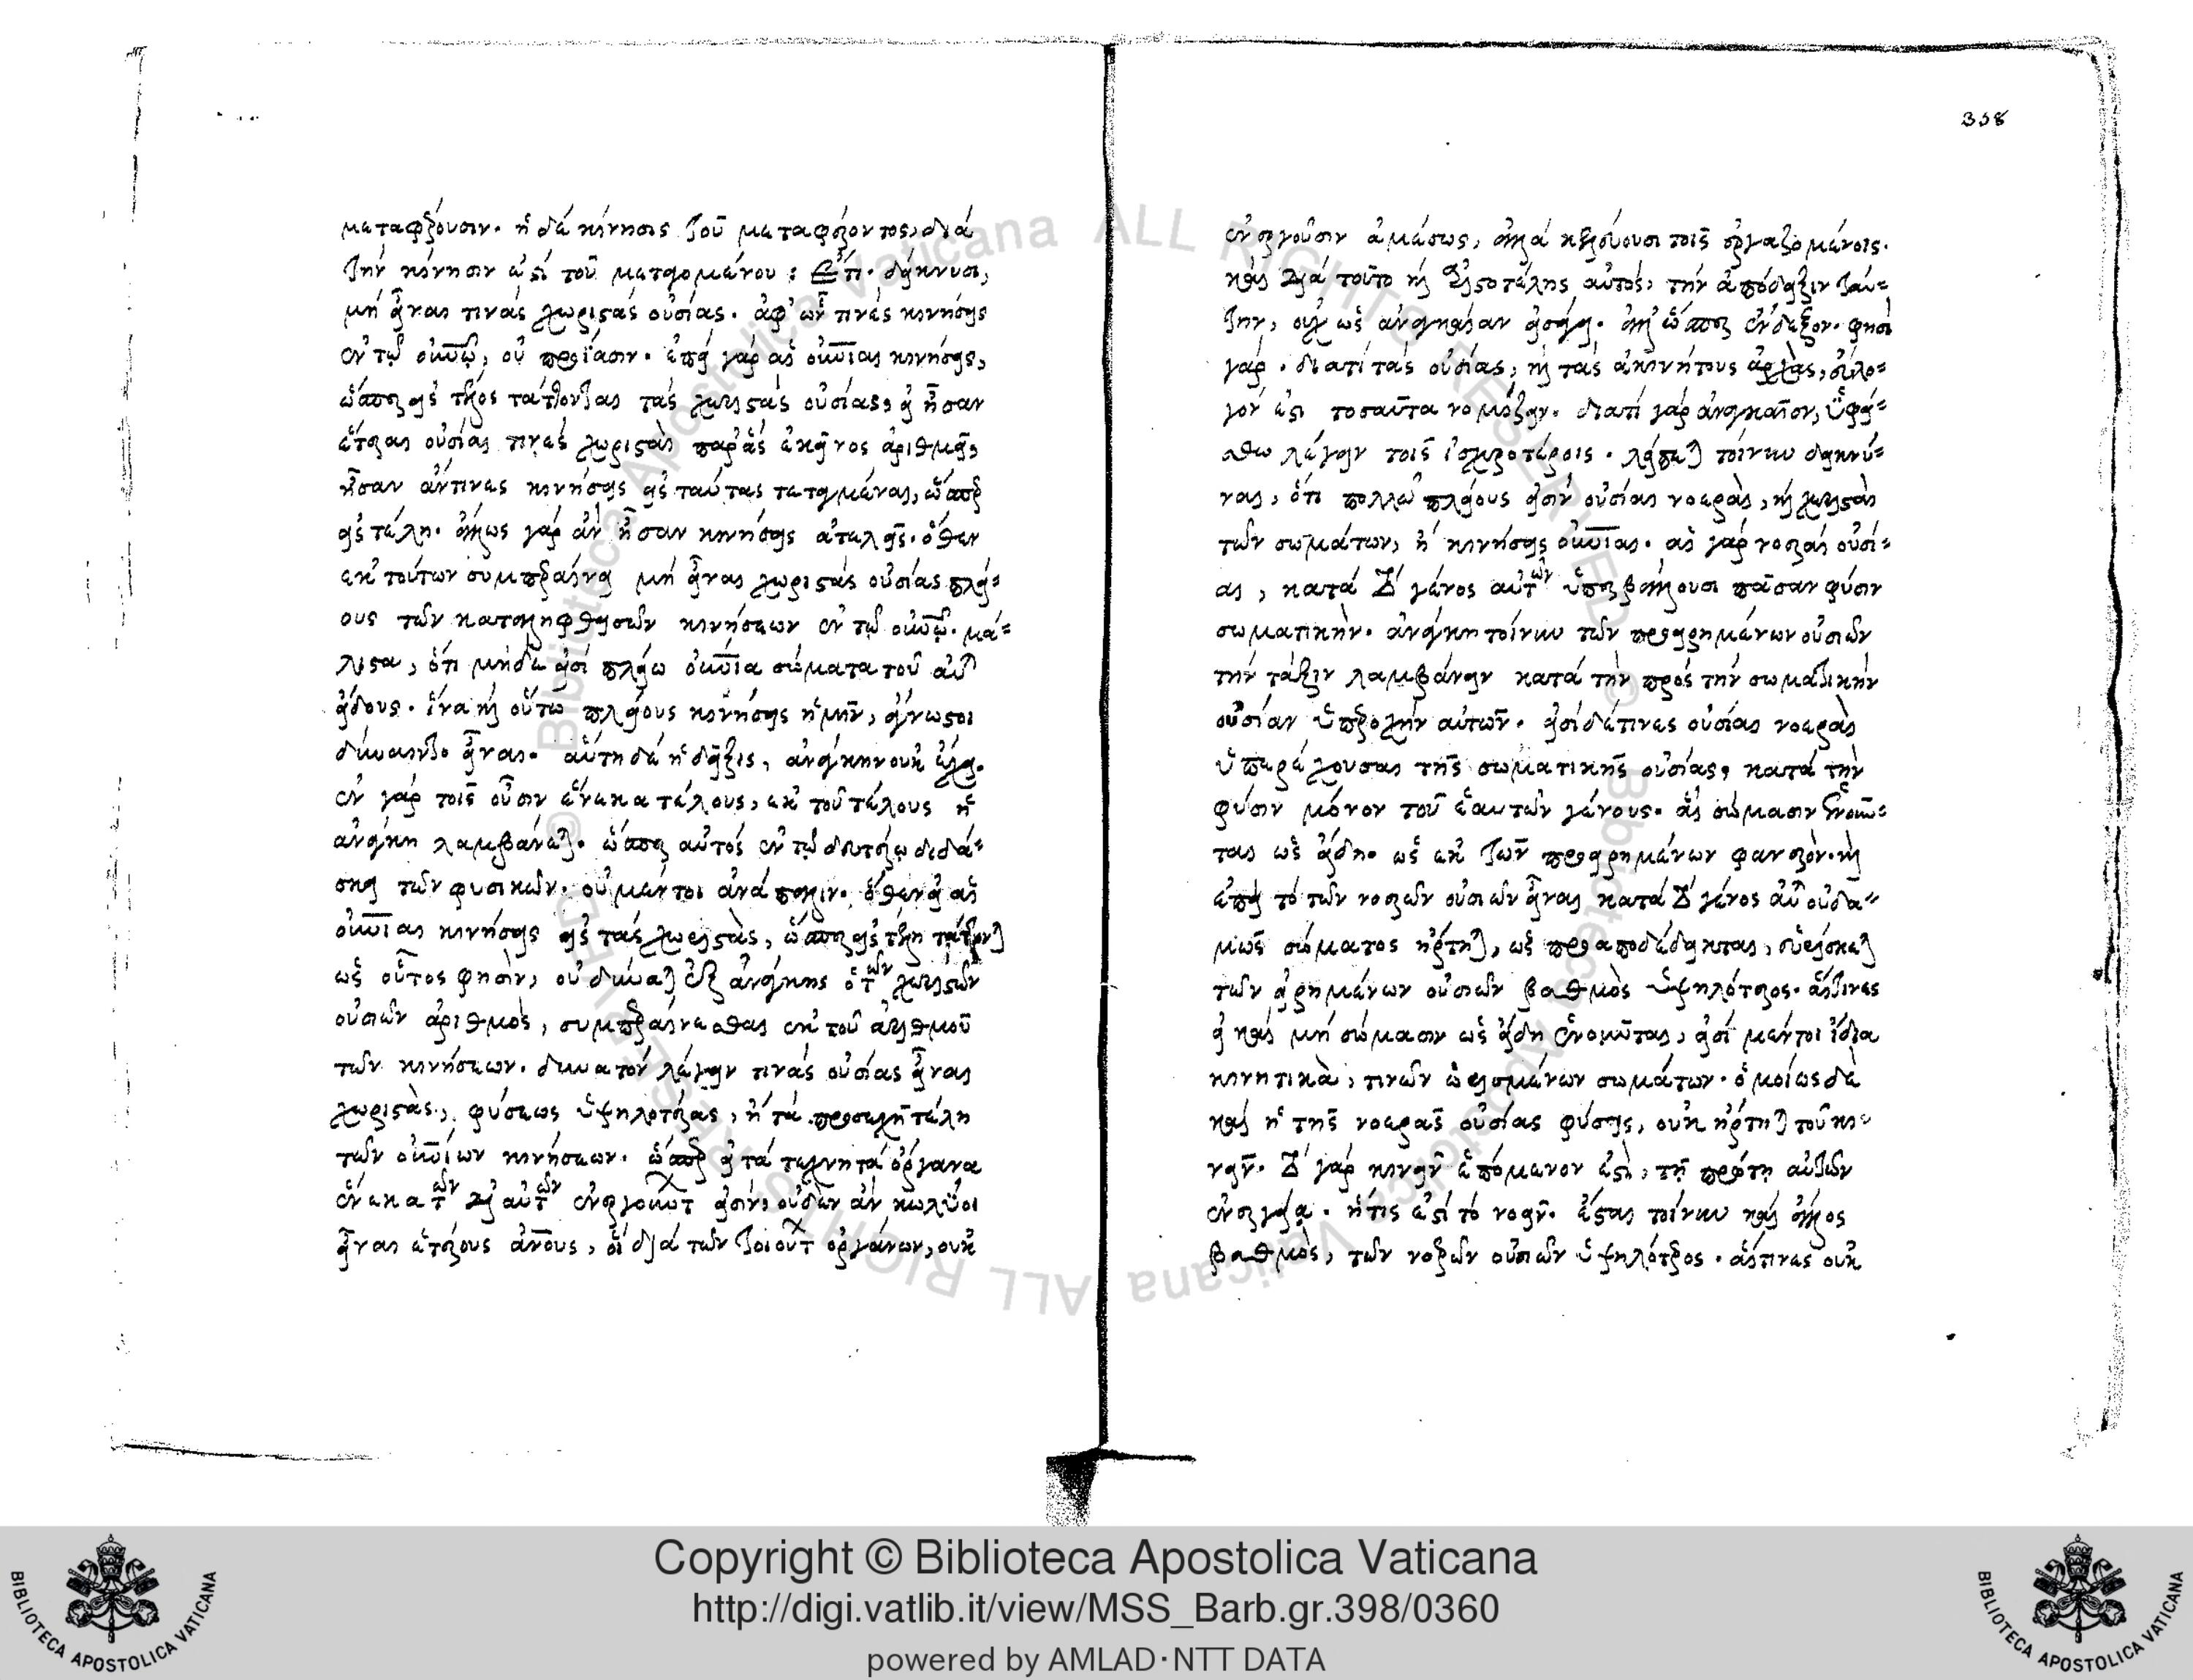 μεταφέρουσιν. ἡ δέ κίνησις τοῦ μεταφέροντος, διά
τήν κίνησιν ἐστί τοῦ μεταφερομένου : Ἔτι δείκνυσι,
μή εἶναι τινάς χωριστάς οὐσίας. ἀφ' ὧν τινές κινήσεις
ἐν τῷ οὐνῷ, οὐ προΐασιν. ἐπεί γάρ αἱ οὐνιαι κινήσεις,
ὥσπερ εἰς τέλος τάττονται τάς χωριστάς οὐσίας, εἰ ἦσαν
ἕτεραι οὐσίαι τινές χωρισταὶ παρ' ἅς ἐκεῖνος ἀριθμεῖ,
ἦσαν ἄν τινες κινήσεις εἰς ταύτας τεταγμέναι, ὥσπερ
εἰς τέλη. ἄλλως γάρ ἄν ἦσαν κινήσεις ἀτελεῖς. ὅθεν
ἐκ τούτων συμπεραίνει μή εἶναι χωριστάς οὐσίας πλεί-
ους τῶν καταληφθεισῶν κινήσεων ἐν τῷ οὐνῷ. μά-
λιστα, ὅτι μηδέ εἰσί πλείω οὐνια σώματα τοῦ αὐτοῦ
εἴδους. ἵνα καί οὕτω πλείους κινήσεις ἡμῖν, ἄγνωστοι
δύναιντο εἶναι. αὕτη δέ ἡ δεῖξις, ἀνάγκην οὐκ ἔχει.
ἐν γάρ τοῖς οὖσιν ἕνεκα τέλους, ἐκ τοῦ τέλους ἡ
ἀνάγκη λαμβάνεται. ὥσπερ αὐτός ἐν τῷ δευτέρῳ διδά-
σκει τῶν φυσικῶν. οὐ μέντοι ἀνάπαλιν. ὅθεν εἰ αἱ
οὐνιαι κινήσεις εἰς τάς χωριστὰς, ὥσπερ εἰς τέλη τάττονται
ὡς οὗτος φησὶν, οὐ δύναται ἐξ ἀνάγκης ὁ τῶν χωριστῶν
οὐσιῶν ἀριθμὸς, συμπεραίνεσθαι ἐκ τοῦ ἀριθμοῦ
τῶν κινήσεων. δυνατόν λέγειν τινάς οὐσίας εἶναι
χωριστὰς, φύσεως ὑψηλοτέρας, ἤ τά προσεχῆ τέλη
τῶν οὐνίων κινήσεων. ὥσπερ εἰ τά τεχνητά ὄργανα
ἕνεκα τῶν δι' αὐτῶν ἐνεργούντων εἰσίν, οὐδὲν ἄν κωλύοι
εἶναι ἑτέρους ἀνους, οἵ διά τῶν τοιούτων ὀργάνων, οὐκ
358
ἐνεργοῦσιν ἀμέσως, ἀλλά κελεύουσι τοῖς ἐργαζομένοις.
καί διά τοῦτο καί Ἀριστοτέλης αὐτός, τήν ἀπόδειξιν ταύ-
την, οὐχ ὡς ἀναγκαίαν εἰσάγει. ἀλλ' ὥσπερ ἔνδοξον. φησί
γάρ. διατί τάς οὐσίας, καί τάς ἀκινήτους ἀρχὰς, εὔλο-
γόν ἐστι τοσαῦτα νομίζειν. διατί γάρ ἀναγκαῖον, ὑφεί-
σθω λέγειν τοῖς ἰσχυροτέροις. λείπεται τοίνυν δεικνύ-
ναι, ὅτι πολλῷ πλείους εἰσίν οὐσίαι νοεραὶ, καί χωρισταὶ
τῶν σωμάτων, ἤ κινήσεις οὐνιαι. αἱ γάρ νοεραί οὐσί-
αι, κατά τό γένος αὐτῶν ὑπερβάλλουσι πᾶσαν φύσιν
σωματικὴν. ἀνάγκη τοίνυν τῶν προειρημένων οὐσιῶν
τήν τάξιν λαμβάνειν κατά τὴν πρός τήν σωματικήν
οὐσίαν ὑπεροχὴν αὐτῶν. εἰσί δέ τινες οὐσίαι νοεραὶ
ὑπερέχουσαι τῆς σωματικῆς οὐσίας, κατά τὴν
φύσιν μόνον τοῦ ἑαυτῶν γένους. αἵ σώμασιν ἑνοῦν-
ται ὡς εἴδη. ὡς ἐκ τῶν προειρημένων φανερὸν. καί
ἐπεί τό τῶν νοερῶν οὐσιῶν εἶναι κατά τό γένος αὐτοῦ οὐδα-
μῶς σώματος ἤρτηται, ὡς προαποδέδεικται, εὑρίσκεται
τῶν εἰρημένων οὐσιῶν βαθμὸς ὑψηλότερος. αἵτινες
εἰ καί μή σώμασιν ὡς εἴδη ἑνοῦνται, εἰσί μέντοι ἴδια
κινητικὰ, τινῶν ὡρισμένων σωμάτων. ὁμοίως δὲ
καί ἡ τῆς νοερᾶς οὐσίας φύσις, οὐκ ἤρτηται τοῦ κι-
νεῖν. τό γάρ κινεῖν ἑπόμενον ἐστὶ, τῇ πρώτῃ αὐτῶν
ἐνεργείᾳ. ἥτις ἐστί τό νοεῖν. ἔσται τοίνυν καί ἄλλος
βαθμὸς, τῶν νοερῶν οὐσιῶν ὑψηλότερος. αἵτινες οὐκ
Copyright © Biblioteca Apostolica Vaticana
http://digi.vatlib.it/view/MSS_Barb.gr.398/0360
powered by AMLAD·NTT DATA
BIBLIOTECA APOSTOLICA VATICANA
BIBLIOTECA APOSTOLICA VATICANA
© Biblioteca Apostolica Vaticana ALL RIGHTS RESERVED